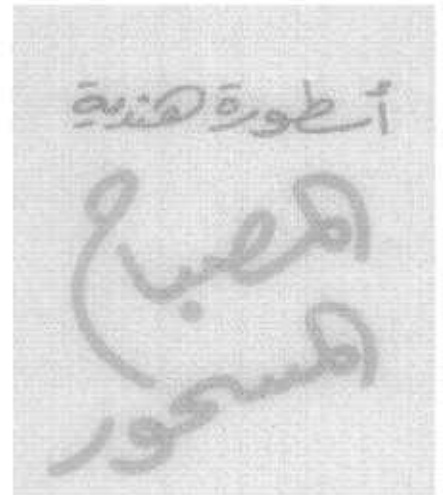 أسطورة هندية
المصباح
المسحور